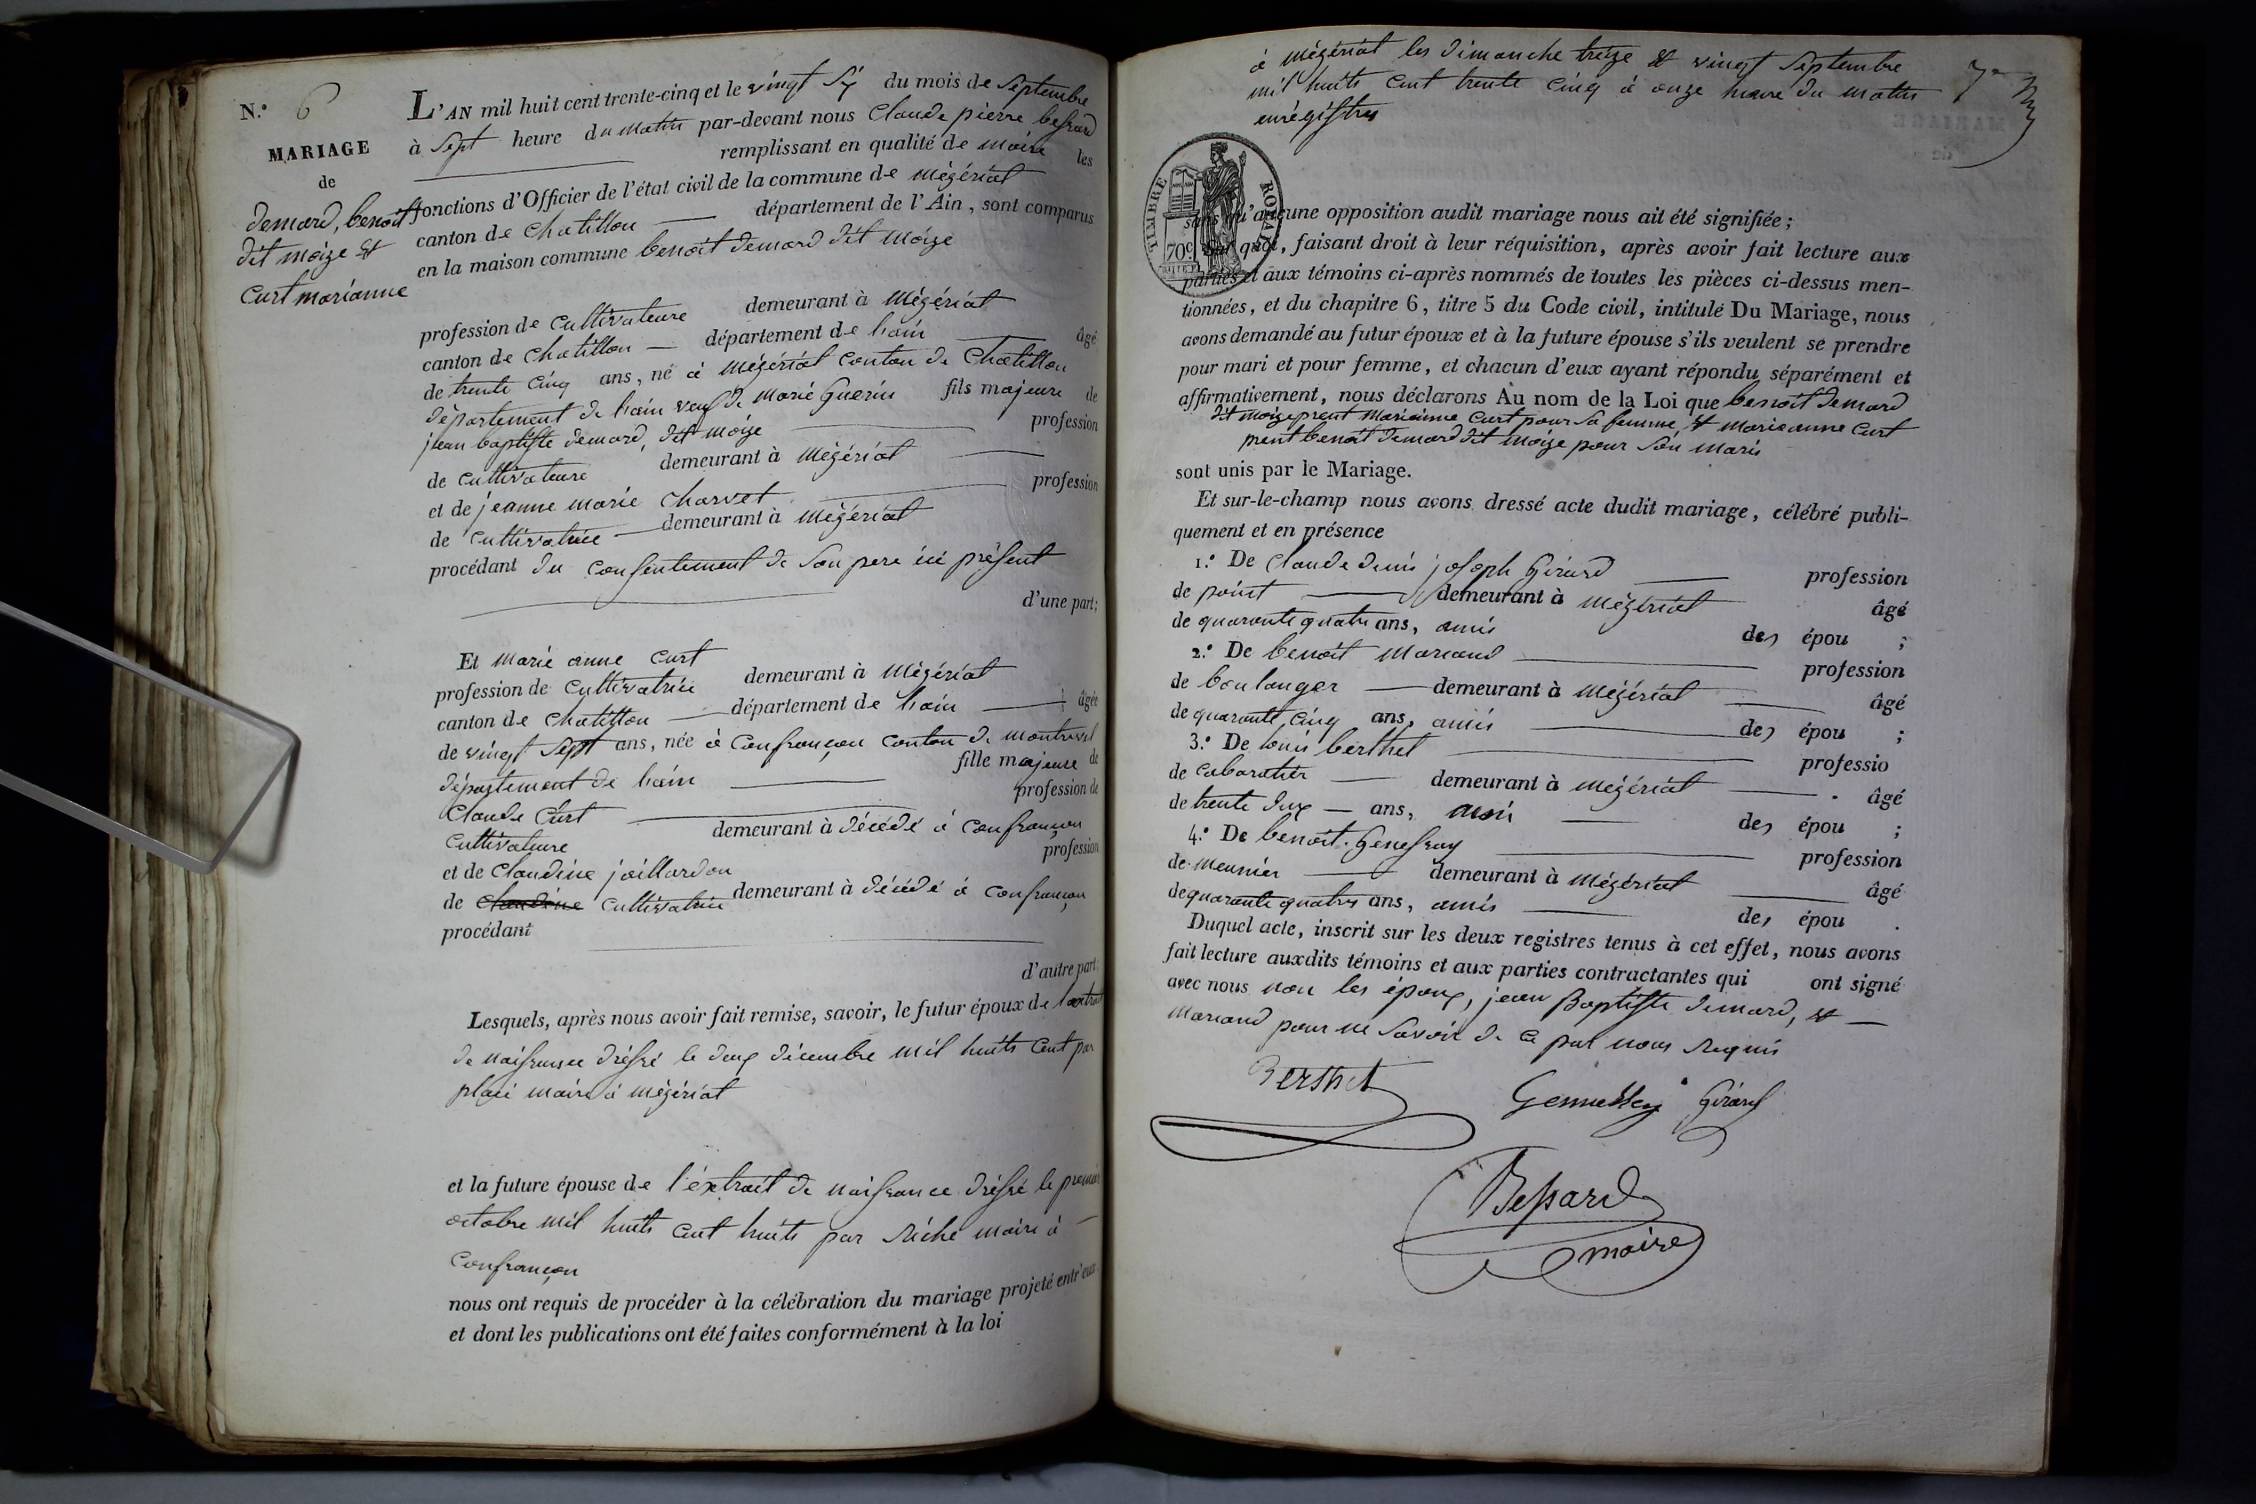 N.º 6
MARIAGE
de
demard, benoit
dit moize et
Curt marianne
L'AN mil huit cent trente-cinq et le vingt six du mois de Septembre
à Sept heure du matin par-devant nous Claude pierre bessard
remplissant en qualité de maire les
fonctions d'Officier de l'état civil de la commune de mézériat
canton de Chatillon département de l'Ain, sont comparus
en la maison commune benoit demard dit moize
profession de Cultivateure demeurant à Mézériat
canton de Chatillon département de l'ain âgé
de trente cinq ans, né à Mézériat canton de Chatillon
département de l'ain veuf de Marie Guerin fils majeure de
jean baptiste demard, dit moize profession
de cultivateure demeurant à Mézériat
et de jeanne marie Charvet profession
de Cultivatrice demeurant à mézériat
procédant du consentement de son pere ici présent
d'une part;
Et marie anne Curt
profession de Cultivatrice demeurant à Mézériat
canton de Chatillon département de l'ain âgée
de vingt Sept ans, née à Confrançon canton de montrevel
département de l'ain fille majeure de
Claude Curt profession de
Cultivateure demeurant à décédé à confrançon
et de Claudine joillardon profession
de Claudine Cultivatrice demeurant à décédé à confrançon
procédant
d'autre part;
Lesquels, après nous avoir fait remise, savoir, le futur époux de l'extrait
de naissance dréssé le deux décembre mil huits cent par
maire à mézériat
et la future épouse de l'éxtrait de naissance dréssé le premier
octobre mil huits cent huits par Riche maire à
Confrançon
nous ont requis de procéder à la célébration du mariage projeté entr'eux
et dont les publications ont été faites conformément à la loi
à mézériat les dimanche treize et vingt Septembre
mil huits cent trente cinq à onze heure du matin
enrégistres
7
TIMBRE ROYAL
70c
sans qu'aucune opposition audit mariage nous ait été signifiée;
Sur quoi, faisant droit à leur réquisition, après avoir fait lecture aux
parties et aux témoins ci-après nommés de toutes les pièces ci-dessus men-
tionnées, et du chapitre 6, titre 5 du Code civil, intitulé Du Mariage, nous
avons demandé au futur époux et à la future épouse s'ils veulent se prendre
pour mari et pour femme, et chacun d'eux ayant répondu séparément et
affirmativement, nous déclarons Au nom de la Loi que benoit demard
dit moize prent marianne Curt pour sa femme, et marie anne Curt
prent benoit demard dit moize pour son maris
sont unis par le Mariage.
Et sur-le-champ nous avons dressé acte dudit mariage, célébré publi-
quement et en présence
1.º De Claude denis joseph Girard profession
de point demeurant à mézériat âgé
de quarante quatre ans, amis des épou ;
2.º De benoit Morand profession
de boulanger demeurant à mézériat âgé
de quarante cinq ans, amis des épou ;
3.º De louis berthet professio
de cabaratier demeurant à mézériat âgé
de trente deux ans, amis des épou ;
4.º De benoit Genessay profession
de meunier demeurant à Mézériat âgé
de quarante quatres ans, amis des épou .
Duquel acte, inscrit sur les deux registres tenus à cet effet, nous avons
fait lecture auxdits témoins et aux parties contractantes qui ont signé
avec nous non les époux, jean Baptiste demard, et
Morand pour ne Savoir de ce part nous requis
Berthet
Gennessey Girard
Bessard
maire